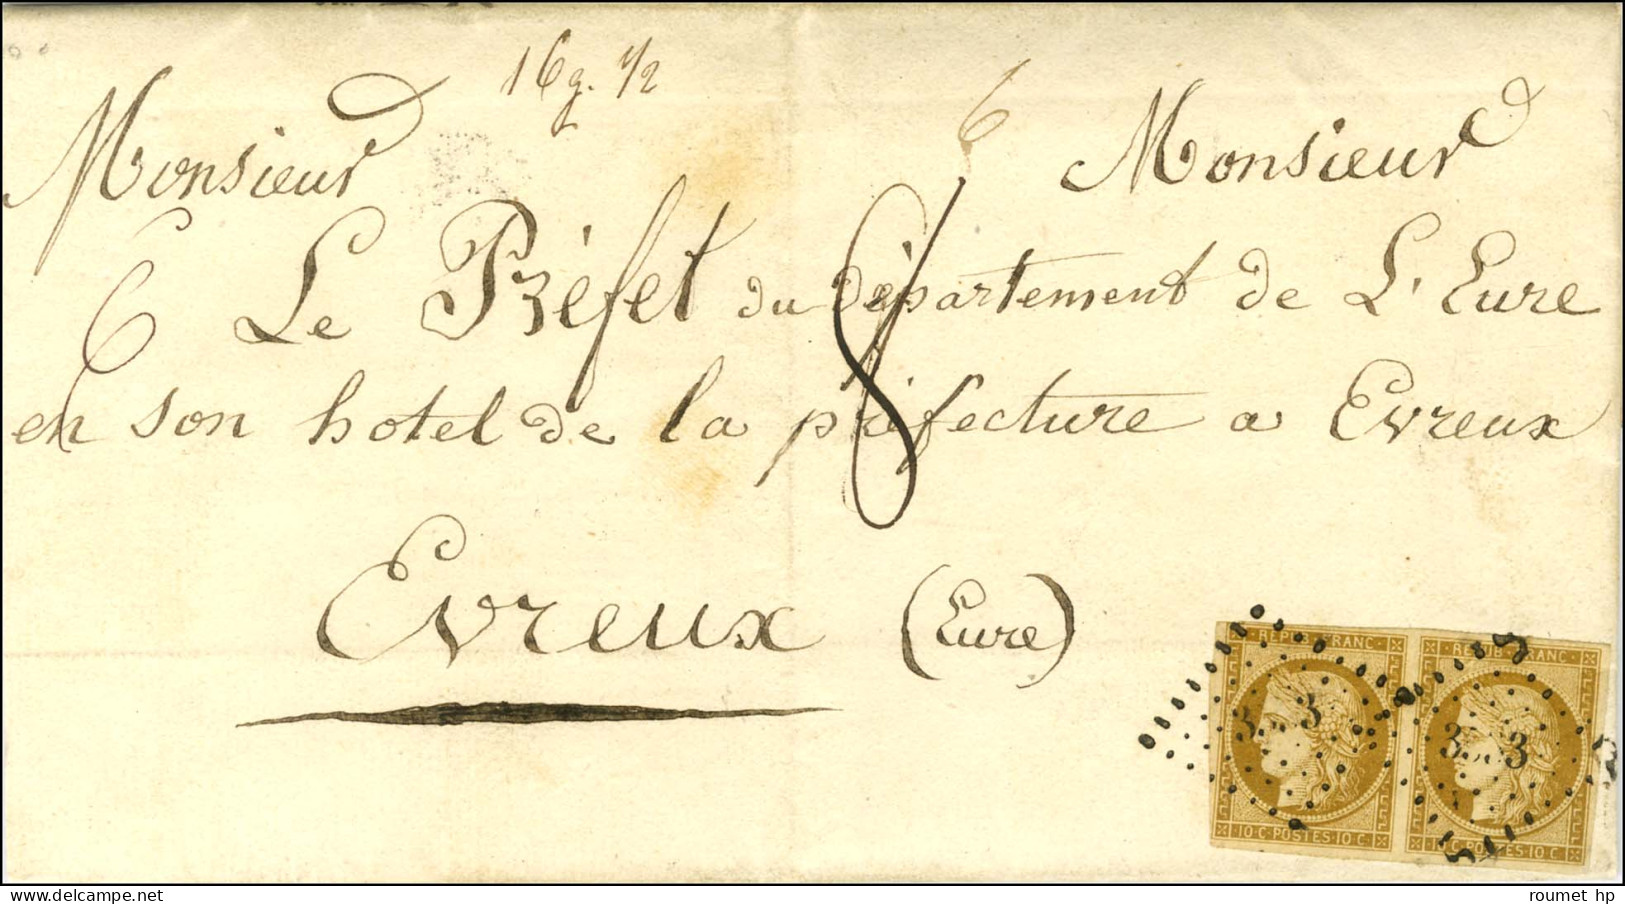 16g. 1/2
6
Monsieur Monsieur
6 Le Préfet du département de L'Eure
8
en son hotel de la préfecture a Evreux
Evreux (Eure)
REPUB. FRANC. REPUB. FRANC.
3 3 3 3
10 C. POSTES 10 C. 10 C. POSTES 10 C.
roumet hp